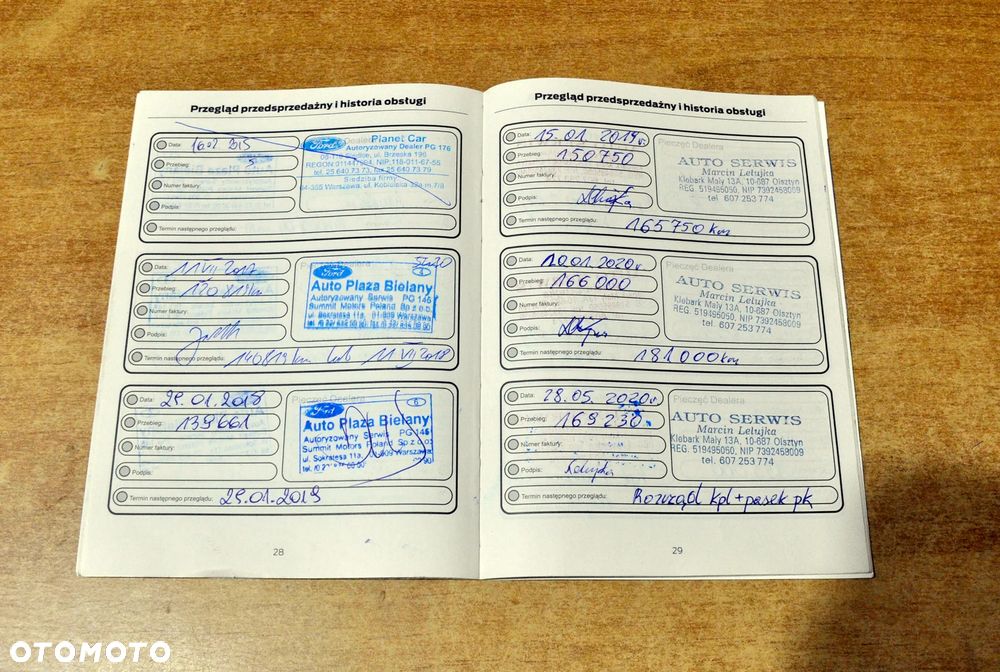 Przegląd przedsprzedażny i historia obsługi
Data: 16.02 2015
Przebieg:
Numer faktury:
Podpis:
Termin następnego przeglądu:
Ford
Planet Car
Autoryzowany Dealer PG 176
08-110 Siedlce, ul. Brzeska 196
REGON:011447994, NIP:118-011-67-55
tel. 25 640 73 73, fax 25 640 73 79
Siedziba firmy:
04-355 Warszawa, ul. Kobielska 23a m 7/8
Data: 11 VII 2017
Przebieg: 120819 km
Numer faktury:
Podpis:
Termin następnego przeglądu: 140819 km lub 11 VII 2018
Pieczęć Dealera
5W20
Ford
6
Auto Plaza Bielany
Autoryzowany Serwis PG 145
Summit Motors Poland Sp z o.o.
ul. Sokratesa 11a, 01-909 Warszawa
Data: 29.01.2018
Przebieg: 139661
Numer faktury:
Podpis:
Termin następnego przeglądu: 29.01.2019
Pieczęć Dealera
Ford
6
Auto Plaza Bielany
Autoryzowany Serwis PG 145
Summit Motors Poland Sp z o.o.
ul. Sokratesa 11a, 01-909 Warszawa
28
Przegląd przedsprzedażny i historia obsługi
Data: 15.01.2019r.
Przebieg: 150750
Numer faktury:
Podpis:
Termin następnego przeglądu: 165750 km
Pieczęć Dealera
AUTO SERWIS
Marcin Lelujka
Klebark Mały 13A, 10-687 Olsztyn
REG. 519495050, NIP 7392458009
tel 607 253 774
Data: 10.01.2020r
Przebieg: 166000
Numer faktury:
Podpis:
Termin następnego przeglądu: 181000km
Pieczęć Dealera
AUTO SERWIS
Marcin Lelujka
Klebark Mały 13A, 10-687 Olsztyn
REG. 519495050, NIP 7392458009
tel. 607 253 774
Data: 28.05.2020r
Przebieg: 169230
Numer faktury:
Podpis:
Termin następnego przeglądu: Rozrząd kpl + pasek pk
Pieczęć Dealera
AUTO SERWIS
Marcin Lelujka
Klebark Mały 13A, 10-687 Olsztyn
REG. 519495050, NIP 7392458009
tel. 607 253 774
29
OTOMOTO